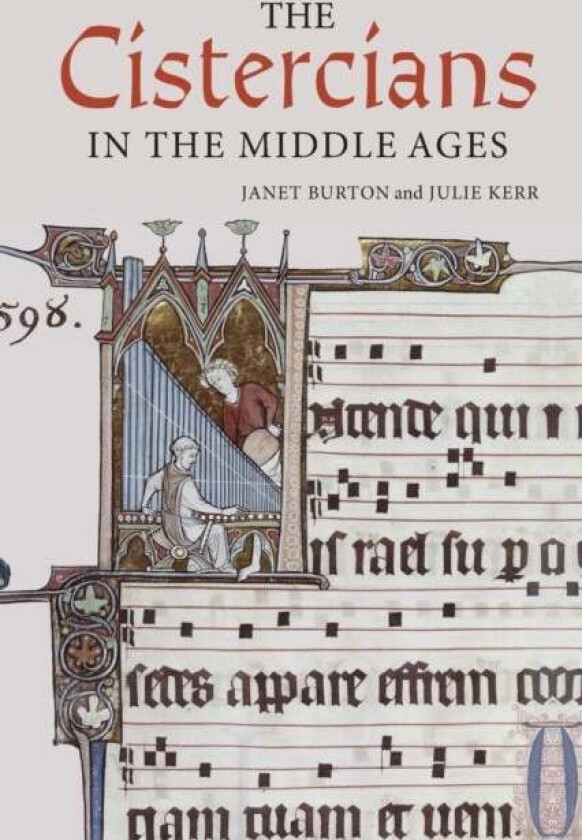 THE
Cistercians
IN THE MIDDLE AGES
JANET BURTON and JULIE KERR
598.
ntende qui
is rael su p
sedes appare effrem
tuam et ueni